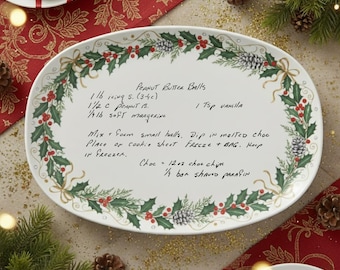 Peanut Butter Balls
1 lb icing s. (3½c)
1½ c peanut B. 1 Tsp vanilla
¼ lb soft margerine
Mix & form small balls. Dip in melted choc
Place on cookie sheet Freeze & BAG. Keep
in Freezer.
Choc = 12oz choc chips
½ bar shaved parafin